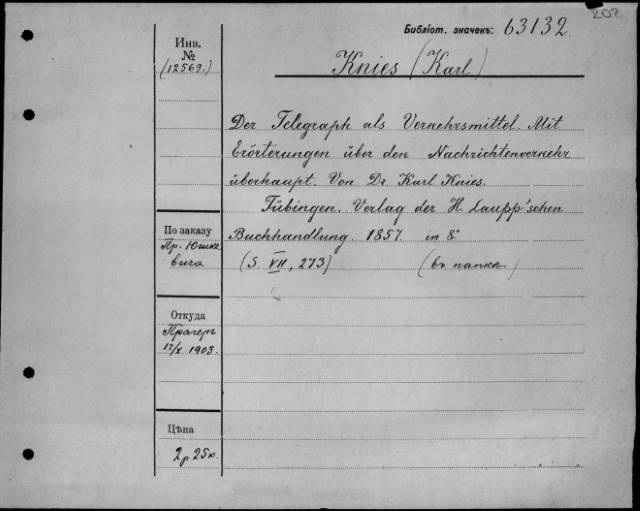 202
Библіот. значекъ: 63132
Инв.
№
(12569.)
Knies (Karl)
Der Telegraph als Verkehrsmittel. Mit
Erörterungen über den Nachrichtenverkehr
überhaupt. Von Dr. Karl Knies.
Tübingen. Verlag der H. Laupp'schen
Buchhandlung. 1857. in 8°
(S. VII, 273) (въ папкѣ)
По заказу
Пр. Юшке
вича
Откуда
Прагеръ
17/X 1903.
Цѣна
2 р 25 к.